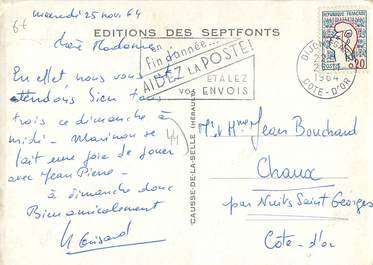 mercredi 25 nov. 64
EDITIONS DES SEPTFONTS
Chère Madame,
En effet nous vous
attendons bien tous
trois ce dimanche à
midi. Marinou se
fait une joie de jouer
avec Jean Pierre.
à dimanche donc
Bien amicalement
en
fin d'année...
AIDEZ LA POSTE!
ETALEZ
VOS ENVOIS
REPUBLIQUE FRANÇAISE
POSTES
0,20
DIJON
1964
COTE-D'OR
CAUSSE-DE-LA-SELLE (HÉRAULT)
44
Mr et Mme Jean Bouchard
Chaux
par Nuits Saint Georges
Côte-d'or